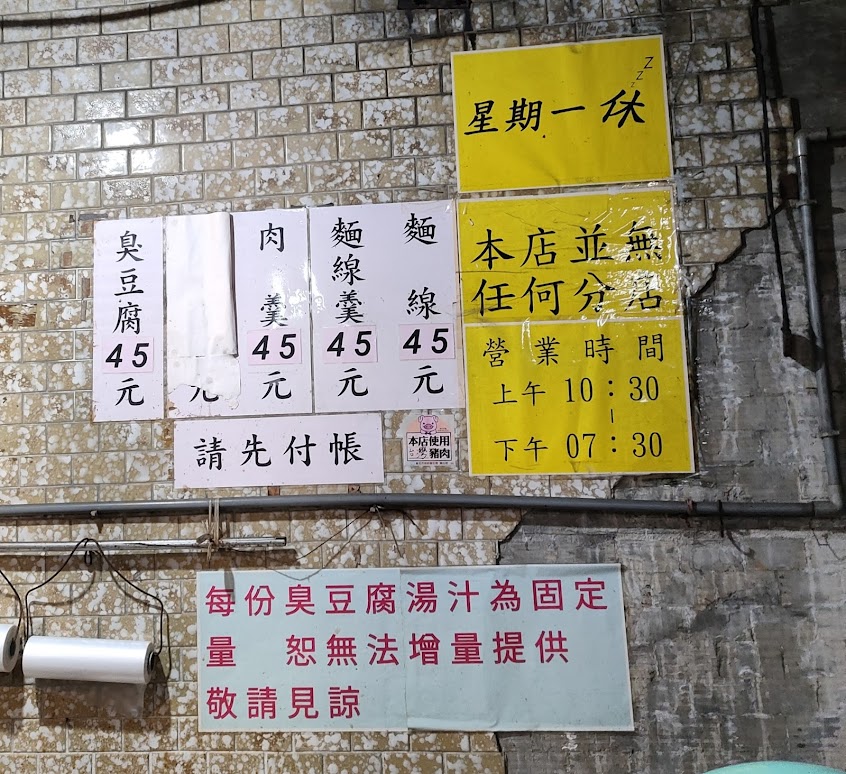 星期一休
z
z
z
本店並無
任何分店
營業時間
上午 10:30
|
下午 07:30
麵線
45
元
麵線羹
45
元
肉羹
45
元
元
臭豆腐
45
元
請先付帳
本店使用
豬肉
每份臭豆腐湯汁為固定
量 恕無法增量提供
敬請見諒